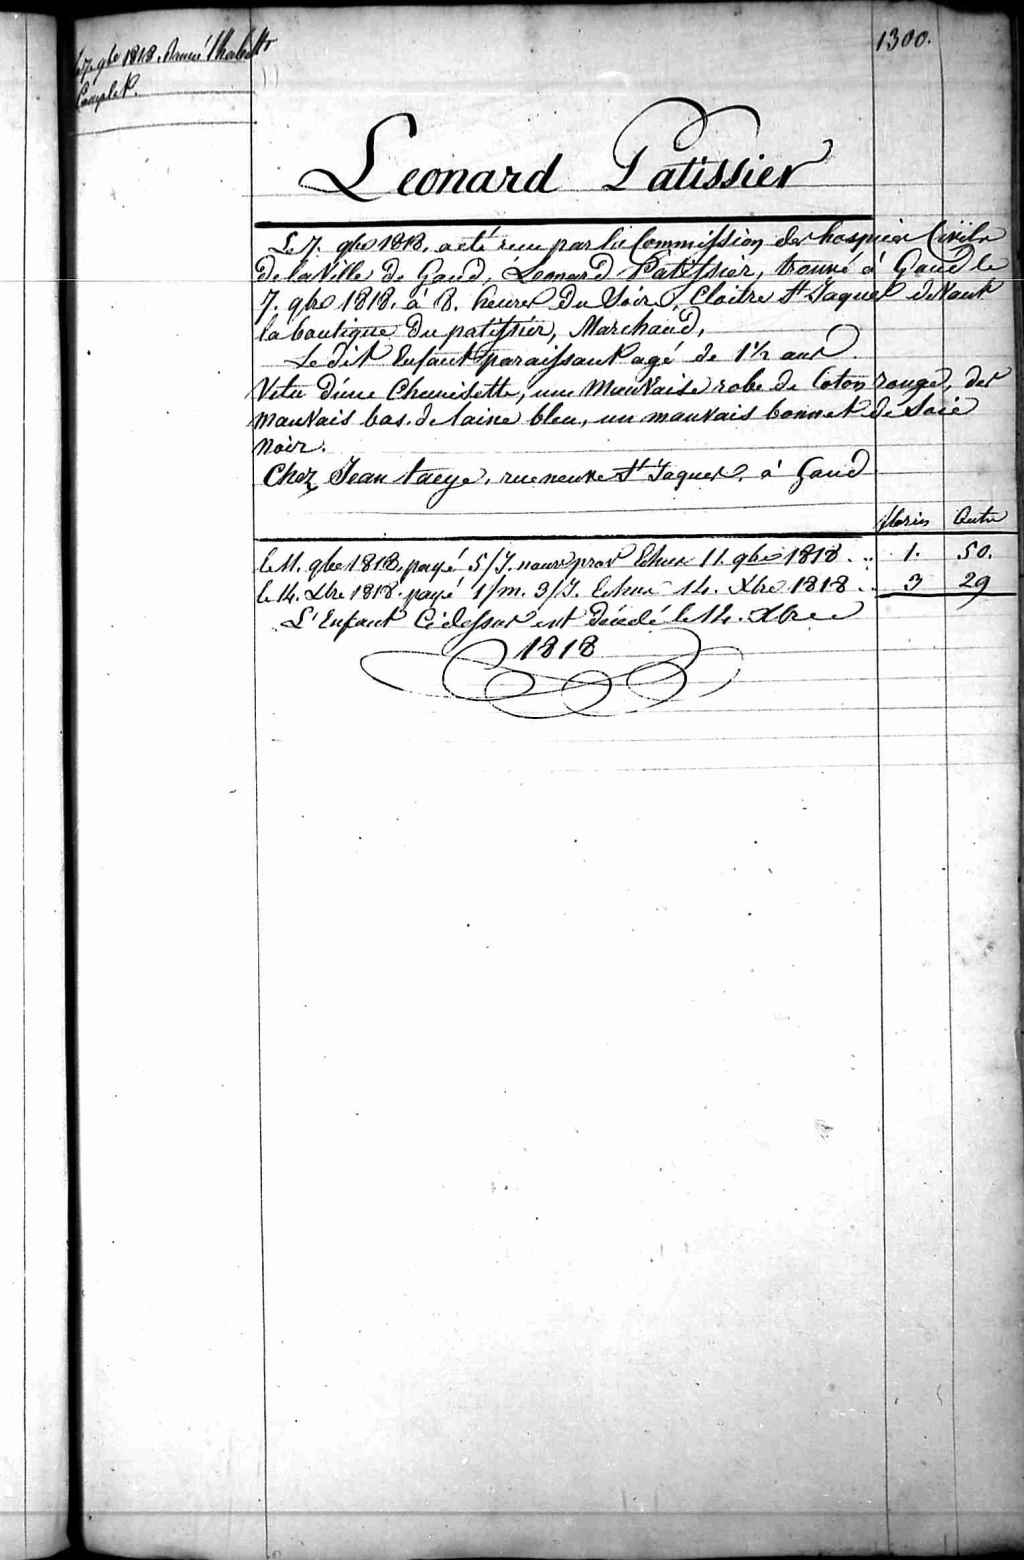 le 7. 9bre 1818. donné l'habillt
Complet.
1300.
Leonard Patissier
Le 7. 9bre 1818. a eté reçu par la Commission des hospices Civils
de la Ville de Gand, Leonard Patissier, trouvé à Gand le
7. 9bre 1818. à 8. heures du Soir, Cloitre St Jaques devant
la boutique du patissier, Marchand,
Le dit Enfant paraissant agé de 1 1/2 ans.
Vetu d'une Chemisette, une Mauvaise robe de Coton rouge, des
mauvais bas de laine bleu, un mauvais bonnet de Soie
noir.
Chez Jean taeye, rue neuve St Jaques, à Gand
florins Cents
le 11. 9bre 1818. payé 5/J. Echus 11. 9bre 1818 .. 1. 50.
le 14. Xbre 1818. payé 1/m. 3/J. Echus 14. Xbre 1818 .. 3 29
L'Enfant Cidessus est Décédé le 14. Xbre
1818